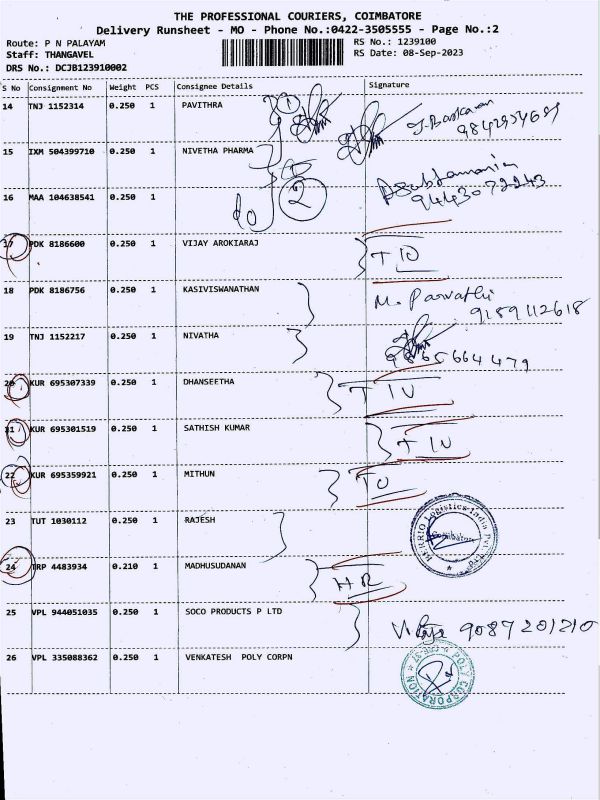 THE PROFESSIONAL COURIERS, COIMBATORE
Delivery Runsheet - MO - Phone No.:0422-3505555 - Page No.:2
Route: P N PALAYAM
Staff: THANGAVEL
DRS No.: DCJB123910002
RS No.: 1239100
RS Date: 08-Sep-2023
S No Consignment No Weight PCS Consignee Details Signature
14 TNJ 1152314 0.250 1 PAVITHRA 1
15 IXM 504399710 0.250 1 NIVETHA PHARMA
16 MAA 104638541 0.250 1 do 2
17 PDK 8186600 0.250 1 VIJAY AROKIARAJ
18 PDK 8186756 0.250 1 KASIVISWANATHAN M. Parvathi 9189112618
19 TNJ 1152217 0.250 1 NIVATHA 9865664479
20 KUR 695307339 0.250 1 DHANSEETHA
21 KUR 695301519 0.250 1 SATHISH KUMAR
22 KUR 695359921 0.250 1 MITHUN
23 TUT 1030112 0.250 1 RAJESH
24 TRP 4483934 0.210 1 MADHUSUDANAN
25 VPL 944051035 0.250 1 SOCO PRODUCTS P LTD 9087201210
26 VPL 335088362 0.250 1 VENKATESH POLY CORPN
POLY CORPORATION